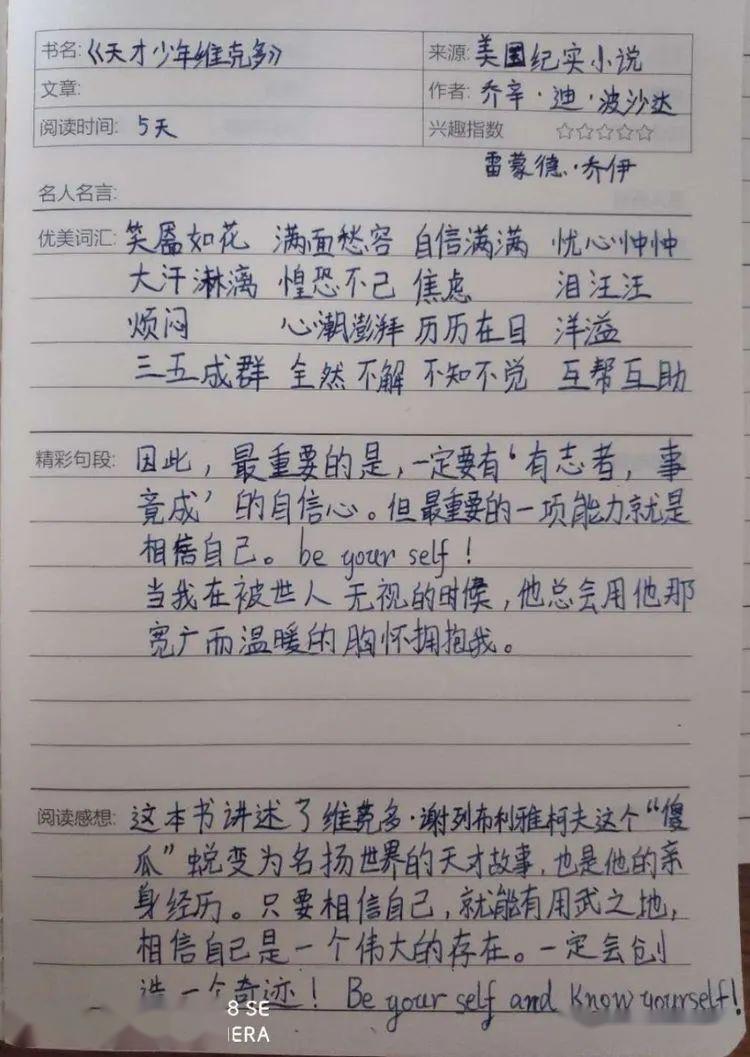 书名:《天才少年维克多》 来源: 美国纪实小说
文章: 作者: 乔辛·迪·波沙达
阅读时间: 5天 兴趣指数 ☆☆☆☆☆
雷蒙德·乔伊
名人名言:
优美词汇: 笑靥如花 满面愁容 自信满满 忧心忡忡
大汗淋漓 惶恐不已 焦虑 泪汪汪
烦闷 心潮澎湃 历历在目 洋溢
三五成群 全然不解 不知不觉 互帮互助
精彩句段: 因此，最重要的是，一定要有‘有志者，事
竟成’的自信心。但最重要的一项能力就是
相信自己。be your self!
当我在被世人无视的时候，他总会用他那
宽广而温暖的胸怀拥抱我。
阅读感想: 这本书讲述了维克多·谢列布利雅柯夫这个“傻
瓜”蜕变为名扬世界的天才故事，也是他的亲
身经历。只要相信自己，就能有用武之地，
相信自己是一个伟大的存在。一定会创
造一个奇迹！Be your self and Know yourself!
8 SE
ERA